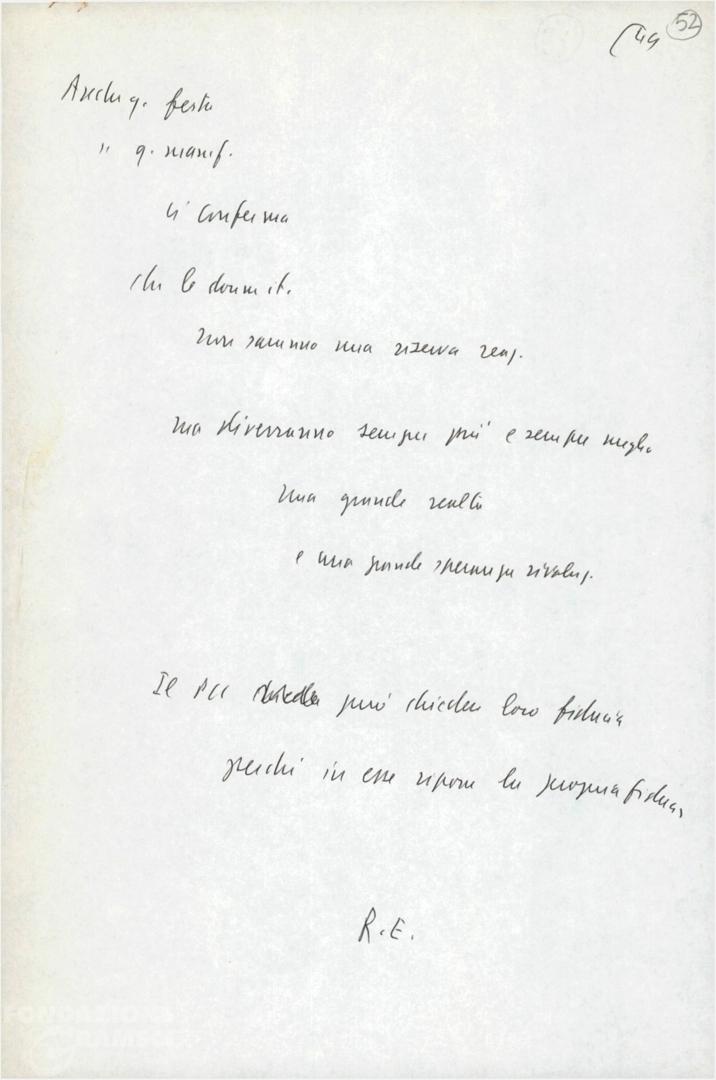 (49 52
Anche q. festa
" q. manif.
ci conferma
che le donne it.
non saranno una riserva reaz.
ma diverranno sempre più e sempre meglio
una grande realtà
e una grande speranza rivoluz.
Il PCI può chiedere loro fiducia
perché in esse ripone la propria fiducia
R.E.
FONDAZIONE
GRAMSCI